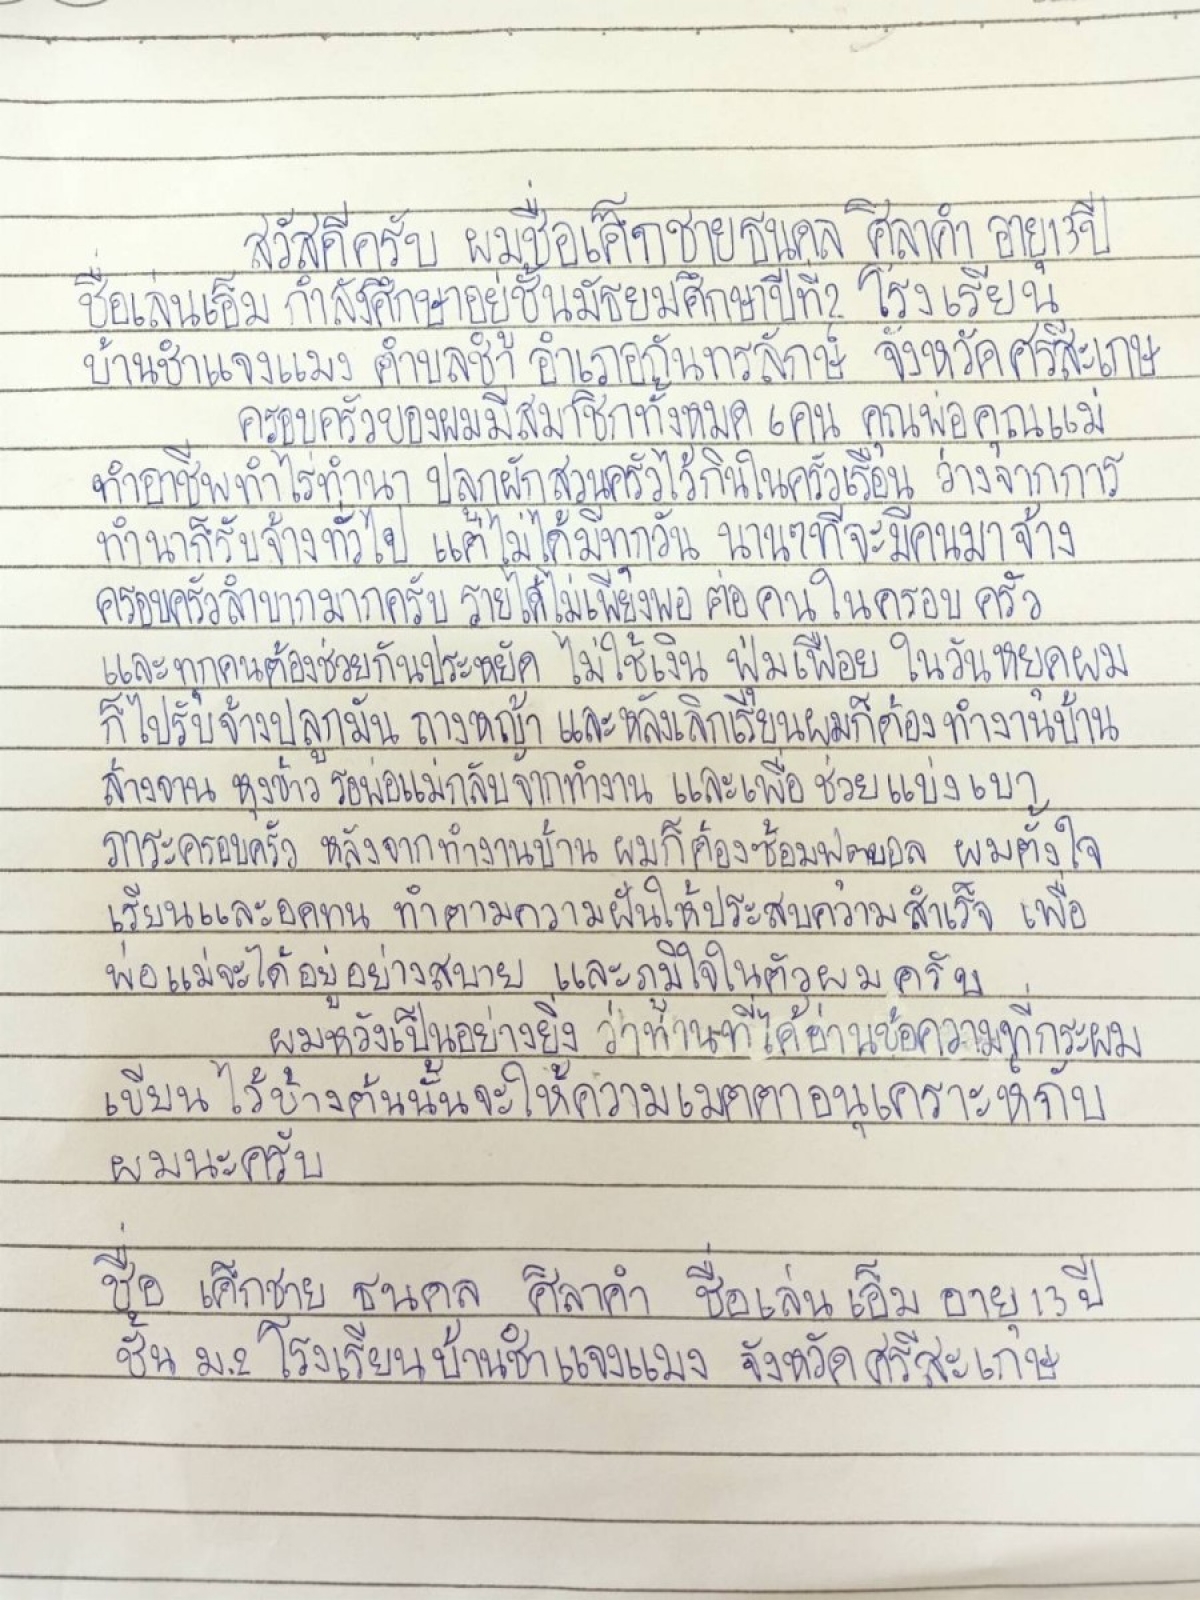 สวัสดีครับ ผมชื่อเด็กชายธนดล ศิลาคำ อายุ13ปี
ชื่อเล่นเอ็ม กำลังศึกษาอยู่ชั้นมัธยมศึกษาปีที่2 โรงเรียน
บ้านชำแจงแมง ตำบลชำ อำเภอกันทรลักษ์ จังหวัดศรีสะเกษ
ครอบครัวของผมมีสมาชิกทั้งหมด 6คน คุณพ่อคุณแม่
ทำอาชีพทำไร่ทำนา ปลูกผักสวนครัวไว้กินในครัวเรือน ว่างจากการ
ทำนาก็รับจ้างทั่วไป แต่ไม่ได้มีทุกวัน นานๆทีจะมีคนมาจ้าง
ครอบครัวลำบากมากครับ รายได้ไม่เพียงพอ ต่อคนในครอบครัว
และทุกคนต้องช่วยกันประหยัด ไม่ใช้เงิน ฟุ่มเฟือย ในวันหยุดผม
ก็ไปรับจ้างปลูกมัน ถางหญ้า และหลังเลิกเรียนผมก็ต้องทำงานบ้าน
ล้างจาน หุงข้าว รอพ่อแม่กลับจากทำงาน และเพื่อช่วยแบ่งเบา
ภาระครอบครัว หลังจากทำงานบ้าน ผมก็ต้องซ้อมฟุตบอล ผมตั้งใจ
เรียนและอดทน ทำตามความฝันให้ประสบความสำเร็จ เพื่อ
พ่อแม่จะได้อยู่อย่างสบาย และภูมิใจในตัวผมครับ
ผมหวังเป็นอย่างยิ่ง ว่าท่านที่ได้อ่านข้อความที่กระผม
เขียนไว้ข้างต้นนั้นจะให้ความเมตตาอนุเคราะห์กับ
ผมนะครับ
ชื่อ เด็กชาย ธนดล ศิลาคำ ชื่อเล่น เอ็ม อายุ 13 ปี
ชั้น ม.2 โรงเรียนบ้านชำแจงแมง จังหวัดศรีสะเกษ